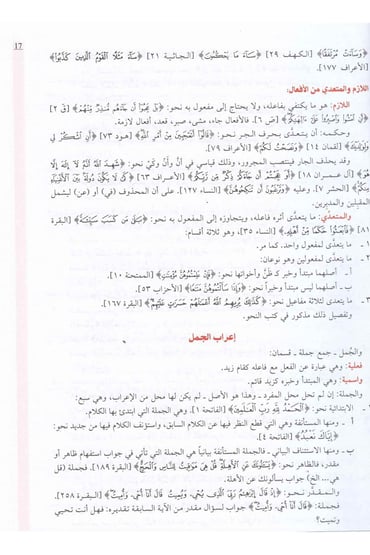 ١٧
﴿وَسَاءَتْ مُرْتَفَقًا﴾ [الكهف ٢٩] ﴿سَاءَ مَا يَحْكُمُونَ﴾ [الجاثية ٢١] ﴿سَاءَ مَثَلًا الْقَوْمُ الَّذِينَ كَذَّبُوا﴾
[الأعراف ١٧٧].
اللازم والمتعدي من الأفعال:
اللازم: هو ما يكتفي بفاعله، ولا يحتاج إلى مفعول به نحو: ﴿بَلْ عَجِبُوا أَن جَاءَهُم مُّنذِرٌ مِّنْهُمْ﴾ [ق ٢]
﴿أَنِ امْشُوا وَاصْبِرُوا عَلَىٰ آلِهَتِكُمْ﴾ [ص ٦]. فالأفعال جاء، مشى، صبر، قعد، أفعال لازمة.
وحكمه: أن يتعدَّى بحرف الجر نحو: ﴿قَالُوا أَتَعْجَبِينَ مِنْ أَمْرِ اللَّهِ﴾ [هود ٧٣] ﴿أَنِ اشْكُرْ لِي
وَلِوَالِدَيْكَ﴾ [لقمان ١٤] ﴿وَنَصَحْتُ لَكُمْ﴾ [الأعراف ٧٩].
وقد يحذف الجار فينتصب المجرور، وذلك قياسي في أنَّ وأنْ وكَيْ نحو: ﴿شَهِدَ اللَّهُ أَنَّهُ لَا إِلَٰهَ إِلَّا
هُوَ﴾ [آل عمران ١٨] ﴿أَوَعَجِبْتُمْ أَن جَاءَكُمْ ذِكْرٌ مِّن رَّبِّكُمْ﴾ [الأعراف ٦٣] ﴿كَيْ لَا يَكُونَ دُولَةً بَيْنَ الْأَغْنِيَاءِ
مِنكُمْ﴾ [الحشر ٧]. وعليه ﴿وَتَرْغَبُونَ أَن تَنكِحُوهُنَّ﴾ [النساء ١٢٧]. على أن المحذوف (في) أو (عن) ليشمل
المقبلين والمدبرين.
والمتعدي: ما يتعدَّى أثره فاعله، ويتجاوزه إلى المفعول به نحو: ﴿بَلَىٰ مَن كَسَبَ سَيِّئَةً﴾ [البقرة
٨١] ﴿فَابْعَثُوا حَكَمًا مِّنْ أَهْلِهِ﴾ [النساء ٣٥]، وهو ثلاثة أقسام:
١ - ما يتعدَّى لمفعول واحد، كما مر.
٢ - ما يتعدَّى لمفعولين وهو نوعان:
أ - أصلهما مبتدأ وخبر كـ ظنَّ وأخواتها نحو: ﴿فَإِنْ عَلِمْتُمُوهُنَّ مُؤْمِنَاتٍ﴾ [الممتحنة ١٠].
ب - أصلهما ليس مبتدأ وخبراً نحو: ﴿وَإِذَا سَأَلْتُمُوهُنَّ مَتَاعًا﴾ [الأحزاب ٥٣].
٣ - ما يتعدى لثلاثة مفاعيل نحو: ﴿كَذَٰلِكَ يُرِيهِمُ اللَّهُ أَعْمَالَهُمْ حَسَرَاتٍ عَلَيْهِمْ﴾ [البقرة ١٦٧].
وتفصيل ذلك مذكور في كتب النحو.
إعراب الجمل
والجُمل - جمع جملة - قسمان:
فعلية: وهي عبارة عن الفعل مع فاعله كقام زيد.
واسمية: وهي المبتدأ وخبره كزيد قائم.
والجملة: إن لم تحل محل المفرد - وهذا هو الأصل - لم يكن لها محل من الإعراب، وهي سبع:
١ - الابتدائية نحو: ﴿الْحَمْدُ لِلَّهِ رَبِّ الْعَالَمِينَ﴾ [الفاتحة ١]. وهي الجملة التي ابتدئ بها الكلام.
أ - ومنها المستأنفة وهي التي قطع النظر فيها عن الكلام السابق، واستؤنف الكلام فيها من جديد نحو:
﴿إِيَّاكَ نَعْبُدُ﴾ [الفاتحة ٤].
ب - ومنها الاستئناف البياني - فالجملة المستأنفة بيانياً هي الجملة التي تأتي في جواب استفهام ظاهر أو
مقدر، فالظاهر نحو: ﴿يَسْأَلُونَكَ عَنِ الْأَهِلَّةِ قُلْ هِيَ مَوَاقِيتُ لِلنَّاسِ وَالْحَجِّ﴾ [البقرة ١٨٩]. فجملة (قل
هي... الخ) جواب يسألونك عن الأهلة.
والمقدر نحو: ﴿إِذْ قَالَ إِبْرَاهِيمُ رَبِّيَ الَّذِي يُحْيِي وَيُمِيتُ قَالَ أَنَا أُحْيِي وَأُمِيتُ﴾ [البقرة ٢٥٨].
فجملة: ﴿قَالَ أَنَا أُحْيِي وَأُمِيتُ﴾ جواب لسؤال مقدر من الآية السابقة تقديره: فهل أنت تحيي
وتميت؟